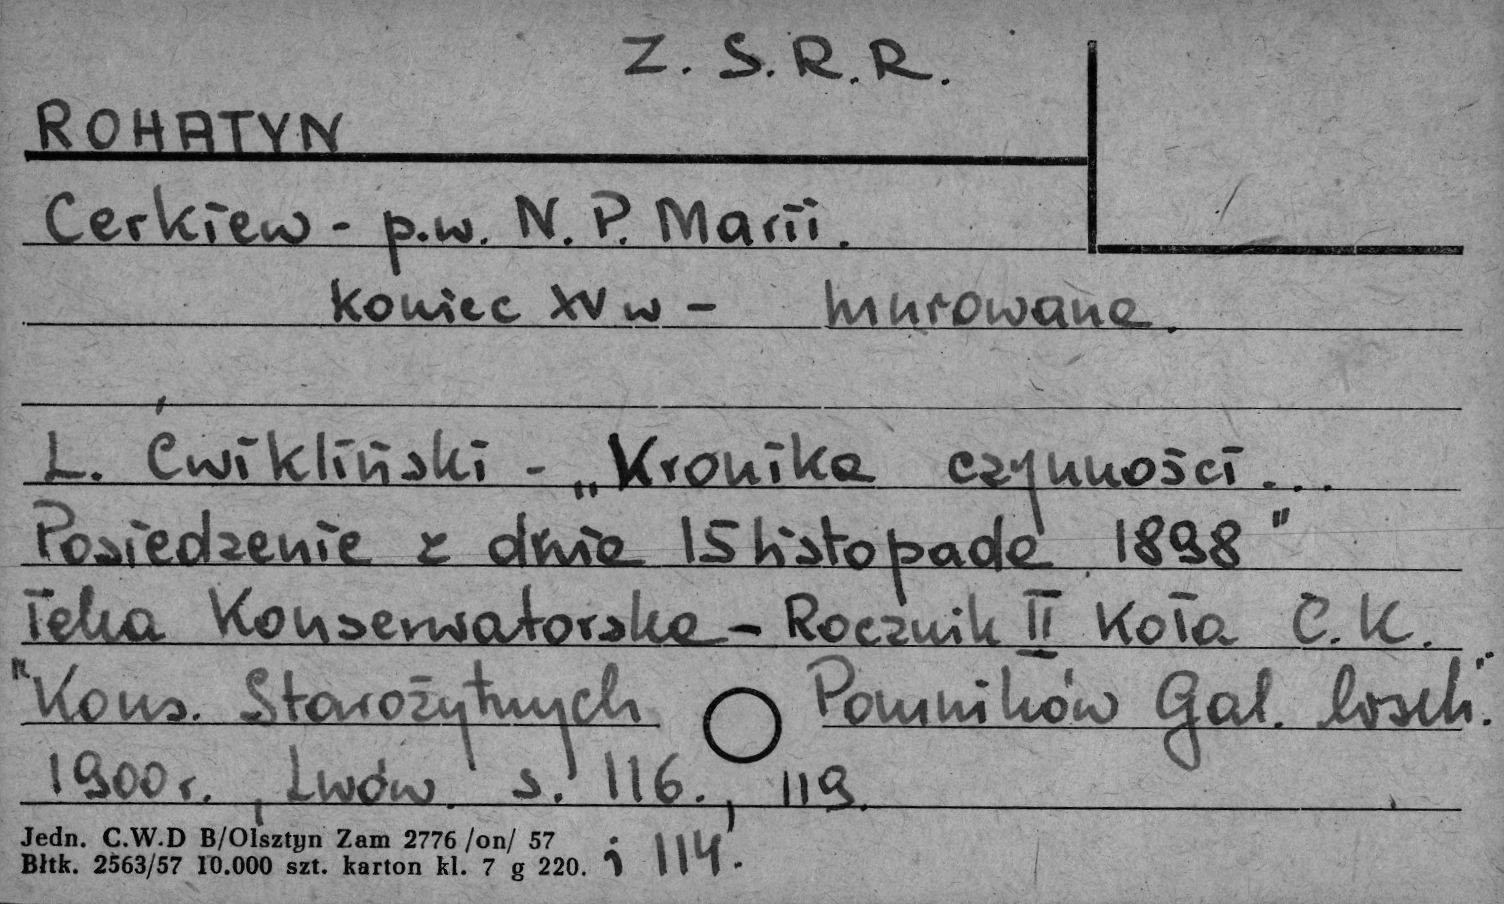 Z. S. R. R.
ROHATYN
Cerkiew - p.w. N. P. Marii.
koniec XV w - murowana.
L. Ćwikliński - „Kronika czynności...
Posiedzenie z dnia 15 listopada 1898"
Teka Konserwatorska - Rocznik II Koła C. K.
"Kons. Starożytnych Pomników Gal. wsch."
1900 r., Lwów. s. 116., 119.
i 114.
Jedn. C.W.D B/Olsztyn Zam 2776 /on/ 57
Błtk. 2563/57 10.000 szt. karton kl. 7 g 220.